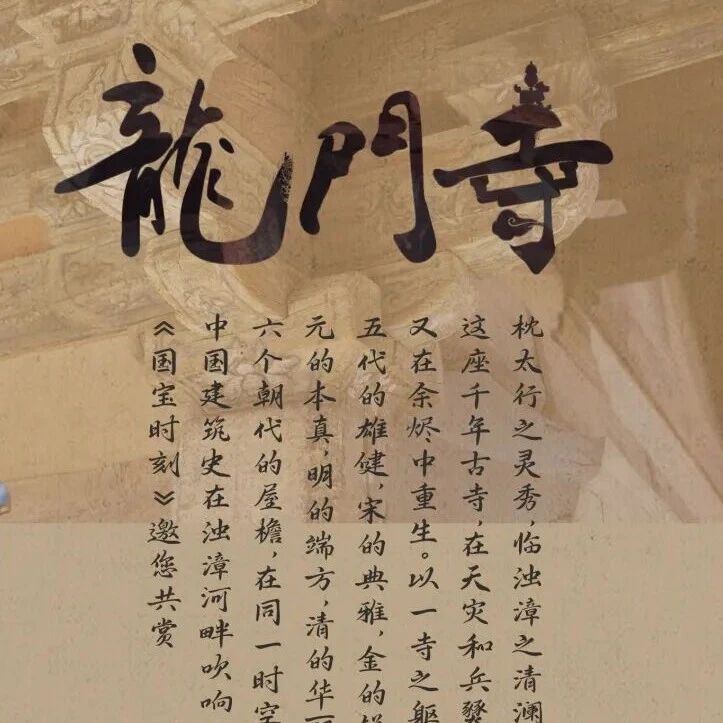 龍門寺
枕太行之灵秀，临浊漳之清澜
这座千年古寺，在天灾和兵燹
又在余烬中重生。以一寺之躯
五代的雄健，宋的典雅，金的
元的本真，明的端方，清的华
六个朝代的屋檐，在同一时空
中国建筑史在浊漳河畔吹响
《国宝时刻》邀您共赏